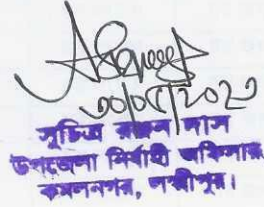 ৩০/০৫/২০২৩
সুচিত্র রঞ্জন দাস
উপজেলা নির্বাহী অফিসার
কমলনগর, লক্ষ্মীপুর।